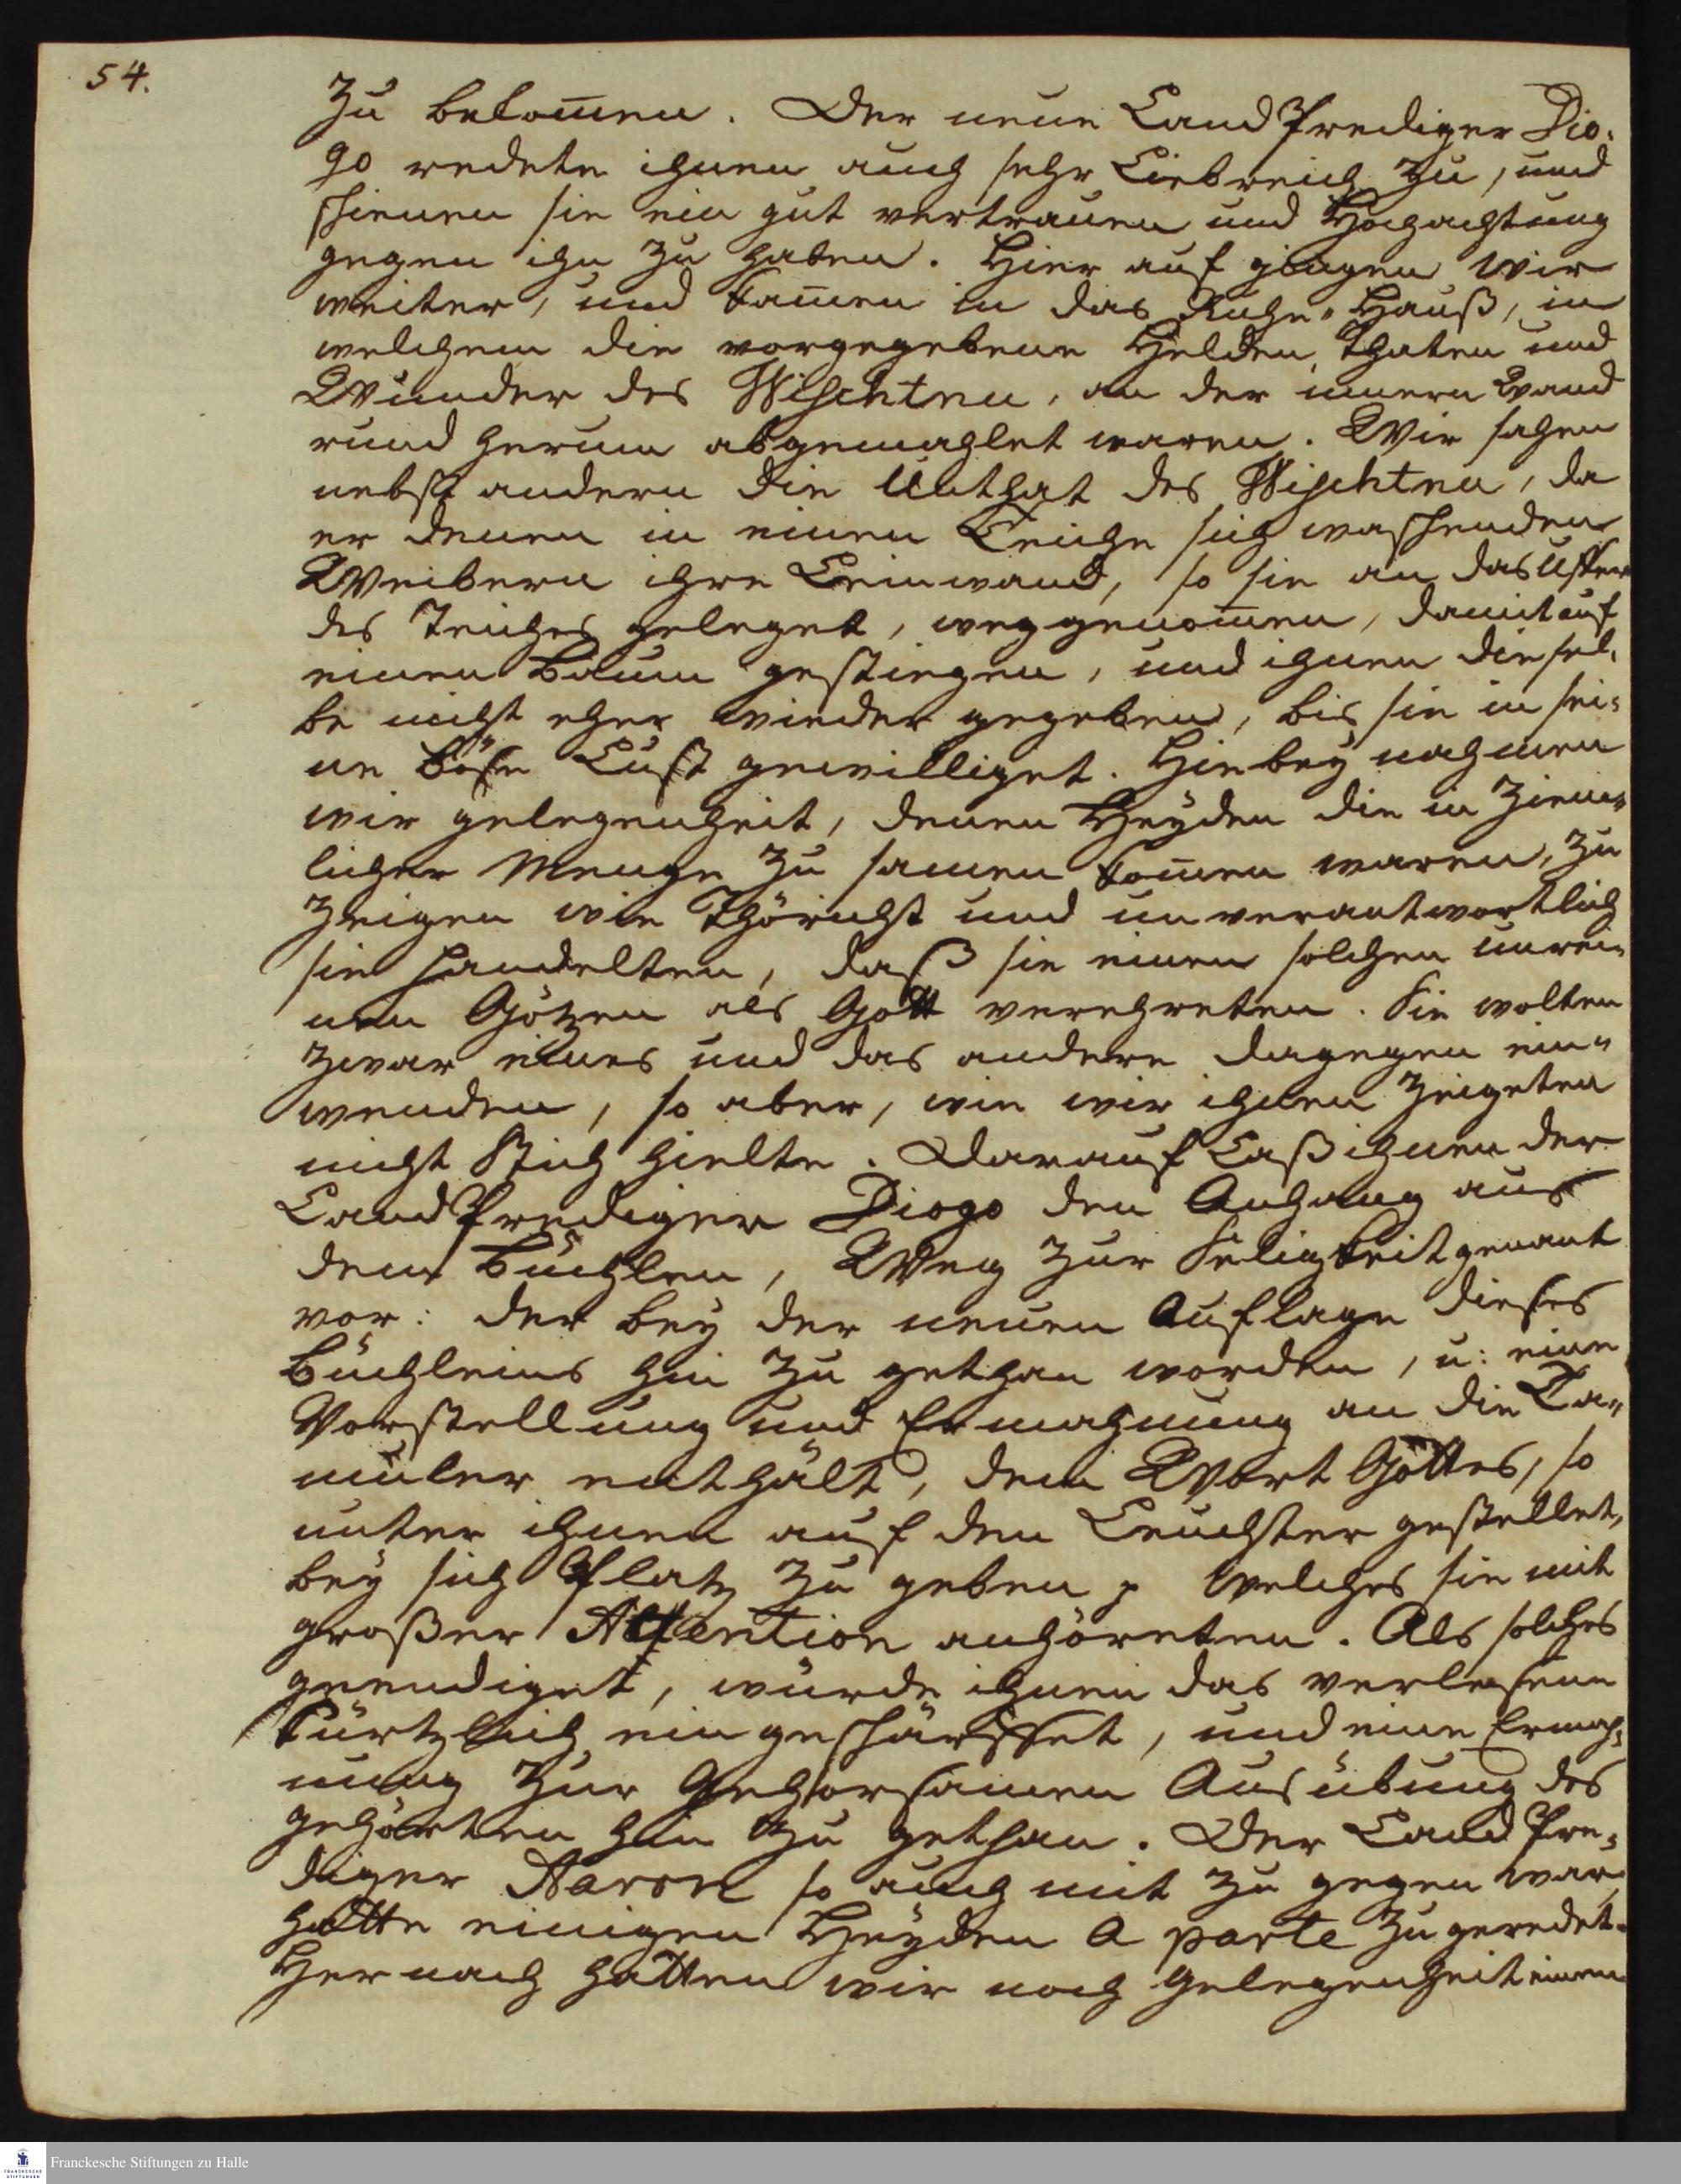 54.
zu bekom̅en. Der neue Land Prediger Dio-
go redete ihnen auch sehr Liebreich zu, und
schienen sie ein gut vertrauen und Hochachtung
gegen ihn zu haben. Hier auf giengen wir
weiter, und kam̅en in das Ruhe-Hauß, in
welchem die vorgegebene Helden Thaten und
Wunder des Wischtnu, an der innern Wand
rund herum abgemahlet waren. Wir sahen
nebst andern die Unthat des Wischtnu, da
er denen in einen Teuche sich waschenden
Weibern ihre Leinwand, so sie an das Uffer
des Teuches geleget, weggenom̅en, damit auf
einen Baum gestiegen, und ihnen diesel-
be nicht eher wieder gegeben, bis sie in sei-
ne böse Lust gewilliget. Hiebey nahmen
wir gelegenheit, denen Heyden die in ziem-
licher Menge zu samen kom̅en waren, zu
zeigen wie Thöricht und unverantwortlich
sie handelten, daß sie einen solchen unrei-
nen Götzen als Gott verehreten. Sie wolten
zwar eines und das andere dagegen ein-
wenden, so aber, wie wir ihnen zeigeten
nicht Stich hielte. Darauf Laß ihnen der
Land Prediger Diogo den Anhang aus
dem Büchlen, Weg zur Seligkeit genant
vor: der bey der neuen Auflage dieses
Büchleins hin zu gethan worden, u: eine
Vorstellung und Ermahnung an die Ta-
muler enthält, dem Wort Gottes, so
unter ihnen auf den Leuchter gestellet,
bey sich Platz zu geben welches sie mit
großer Attention anhöreten. Als solches
geendiget, wurde ihnen das verlesene
kürtzlich eingeschärffet, und eine Ermah-
nung zur Gehorsamen Ausübung des
gehörten hin zu gethan. Der Land Pre-
diger Aaron so auch mit zu gegen war
hatte einigen Heyden a parte zu geredet.
Hernach hatten wir noch gelegenheit einen
Franckesche Stiftungen zu Halle